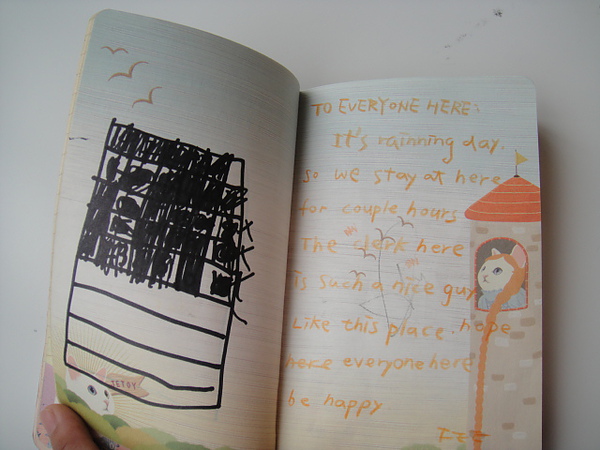 JETOY
TO EVERYONE HERE:
It's rainning day.
So we stay at here
for couple hours
The clerk here
is such a nice guy
Like this place. hope
here everyone here
be happy